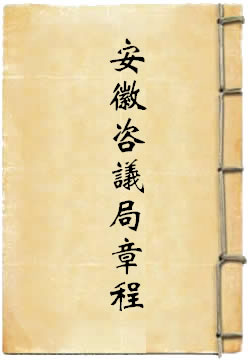 安徽咨議局章程